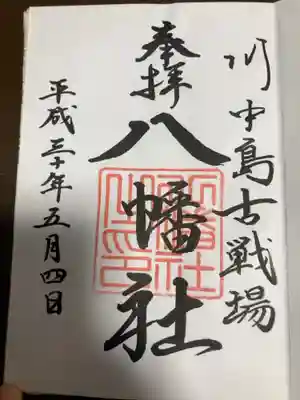 川中島古戦場
奉拝
八幡社
平成三十年五月四日